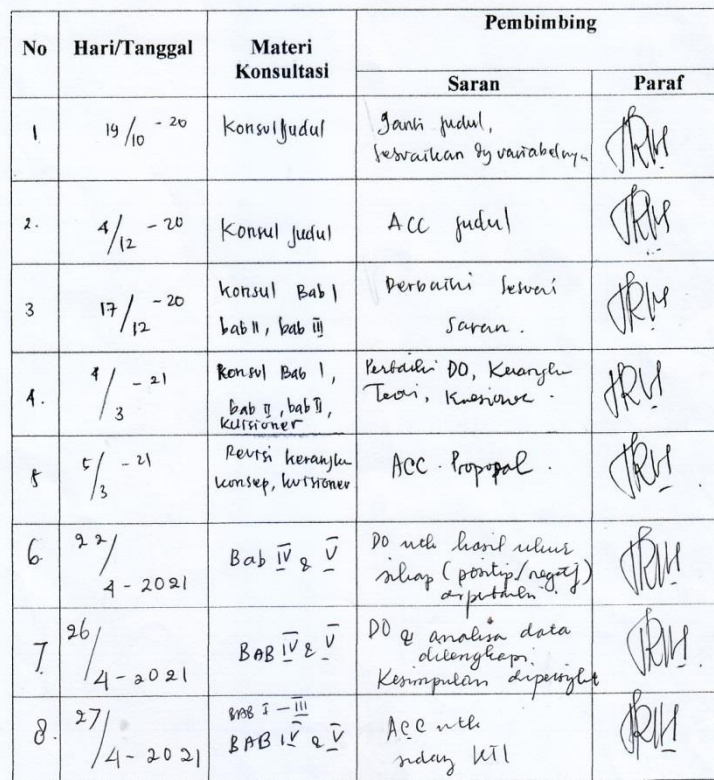 Pembimbing
No Hari/Tanggal Materi
Konsultasi
Saran Paraf
1 19/10 - 20 Konsul Judul Ganti judul,
sesuaikan dg variabelnya
2. 4/12 - 20 Konsul Judul ACC judul
3 17/12 - 20 Konsul Bab I
bab II, bab III
Perbaiki sesuai
saran.
4. 4/3 - 21 Konsul Bab I,
bab II, bab II,
kuisioner
Perbaiki DO, Kerangka
Teori, Kuesioner.
5 5/3 - 21 Revisi kerangka
konsep, kuisioner
ACC. Propopal.
6. 22/4 - 2021 Bab IV & V
DO utk hasil ukur
sikap (positip/negatif)
diperbaiki.
7. 26/4 - 2021 BAB IV & V
DO & analisa data
dilengkapi.
Kesimpulan dipersingkat
8. 27/4 - 2021 BAB I - III
BAB IV & V
ACC utk
sidang KTI